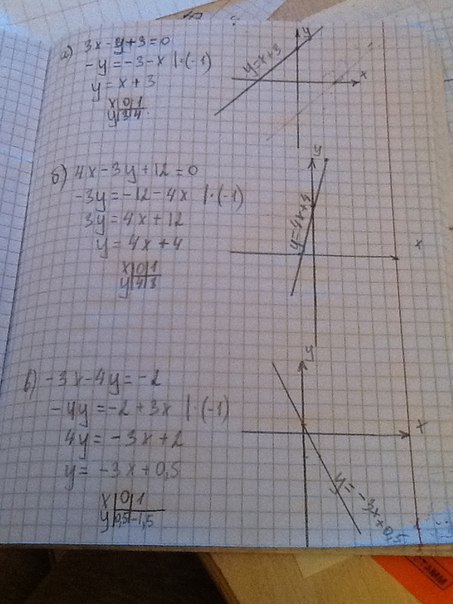 а) 3x-y+3=0
-y=-3-x |·(-1)
y=x+3
x|0|1
y|3|4
y=x+3
y
x
б) 4x-3y+12=0
-3y=-12-4x |·(-1)
3y=4x+12
y=4x+4
x|0|1
y|4|8
y=4x+4
y
x
в) -3x-4y=-2
-4y=-2+3x |·(-1)
4y=-3x+2
y=-3x+0,5
x|0|1
y|0,5|-1,5
y=-3x+0,5
y
x